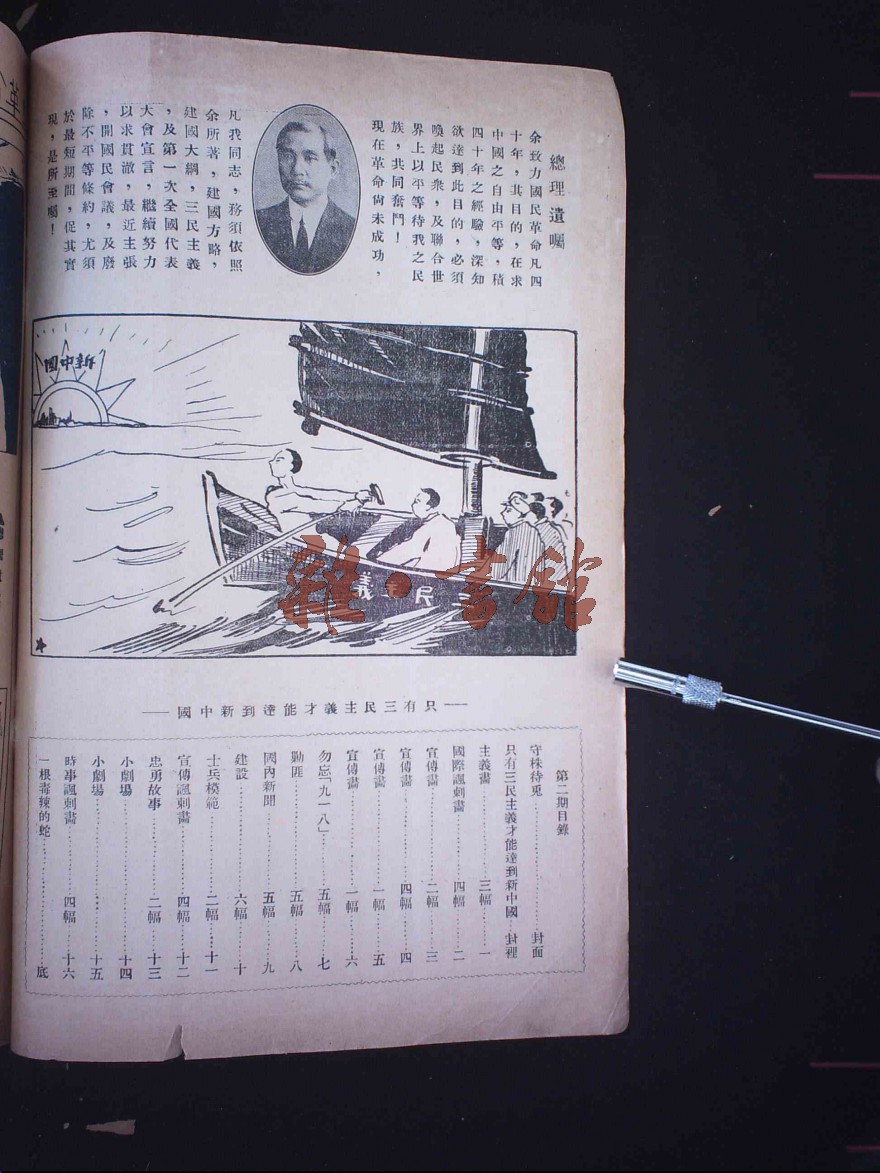 總理遺囑
余致力國民革命凡四
十年，其目的，在求
中國之自由平等，積
四十年之經驗，深知
欲達到此目的，必須
喚起民衆，及聯合世
界上以平等待我之民
族，共同奮鬥！
現在革命尙未成功，
凡我同志，務須依照
余所著，建國方略，
建國大綱，三民主義
，及第一次全國代表
大會宣言，繼續努力
以求貫澈，最近主張
，開國民會議，及廢
除不平等條約，尤須
於最短期間，促其實
現，是所至囑！
新中國
三民主義
雜·書館
——只有三民主義才能達到新中國——
第二期目錄
守株待兎……封面
只有三民主義才能達到新中國…封裡
主義畫……三幅……一
國際諷刺畫……四幅……二
宣傳畫……二幅……三
宣傳畫……四幅……四
宣傳畫……一幅……五
宣傳畫……一幅……六
勿忘「九一八」……五幅……七
勦匪……五幅……八
國內新聞……五幅……九
建設……六幅……十
士兵模範……二幅……十一
宣傳諷刺畫……四幅……十二
忠勇故事……二幅……十三
小劇場……十四
小劇場……十五
時事諷刺畫……四幅……十六
一根毒辣的蛇……底